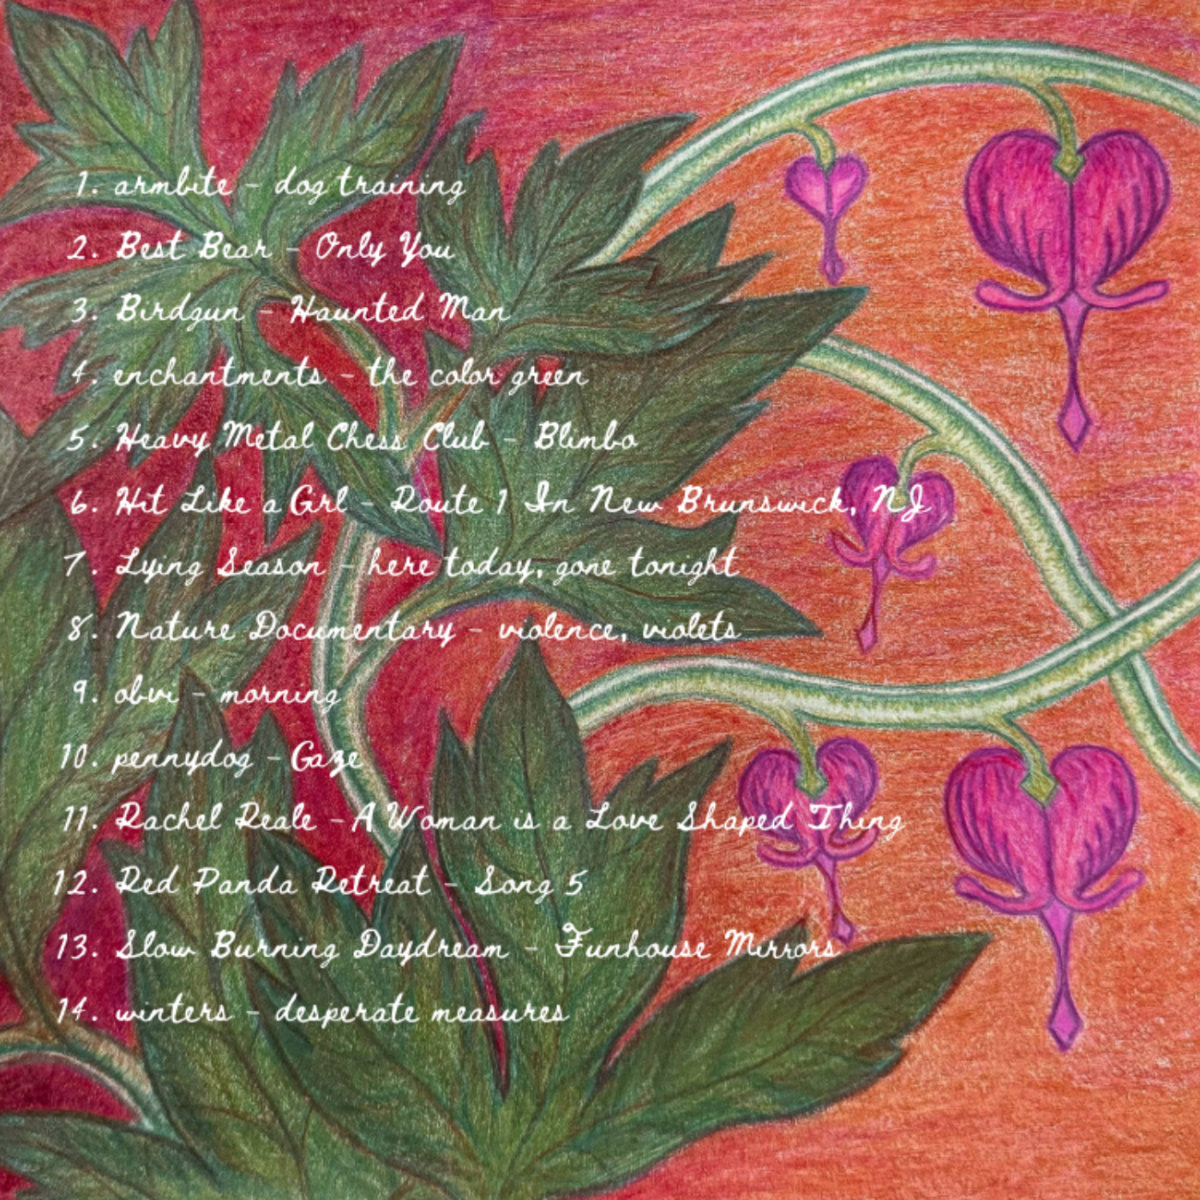 1. armbite - dog training
2. Best Bear - Only You
3. Birdgun - Haunted Man
4. enchantments - the color green
5. Heavy Metal Chess Club - Blimbo
6. Hit Like a Girl - Route 1 In New Brunswick, NJ
7. Lying Season - here today, gone tonight
8. Nature Documentary - violence, violets
9. obvi - morning
10. pennydog - Gaze
11. Rachel Reale - A Woman is a Love Shaped Thing
12. Red Panda Retreat - Song 5
13. Slow Burning Daydream - Funhouse Mirrors
14. winters - desperate measures